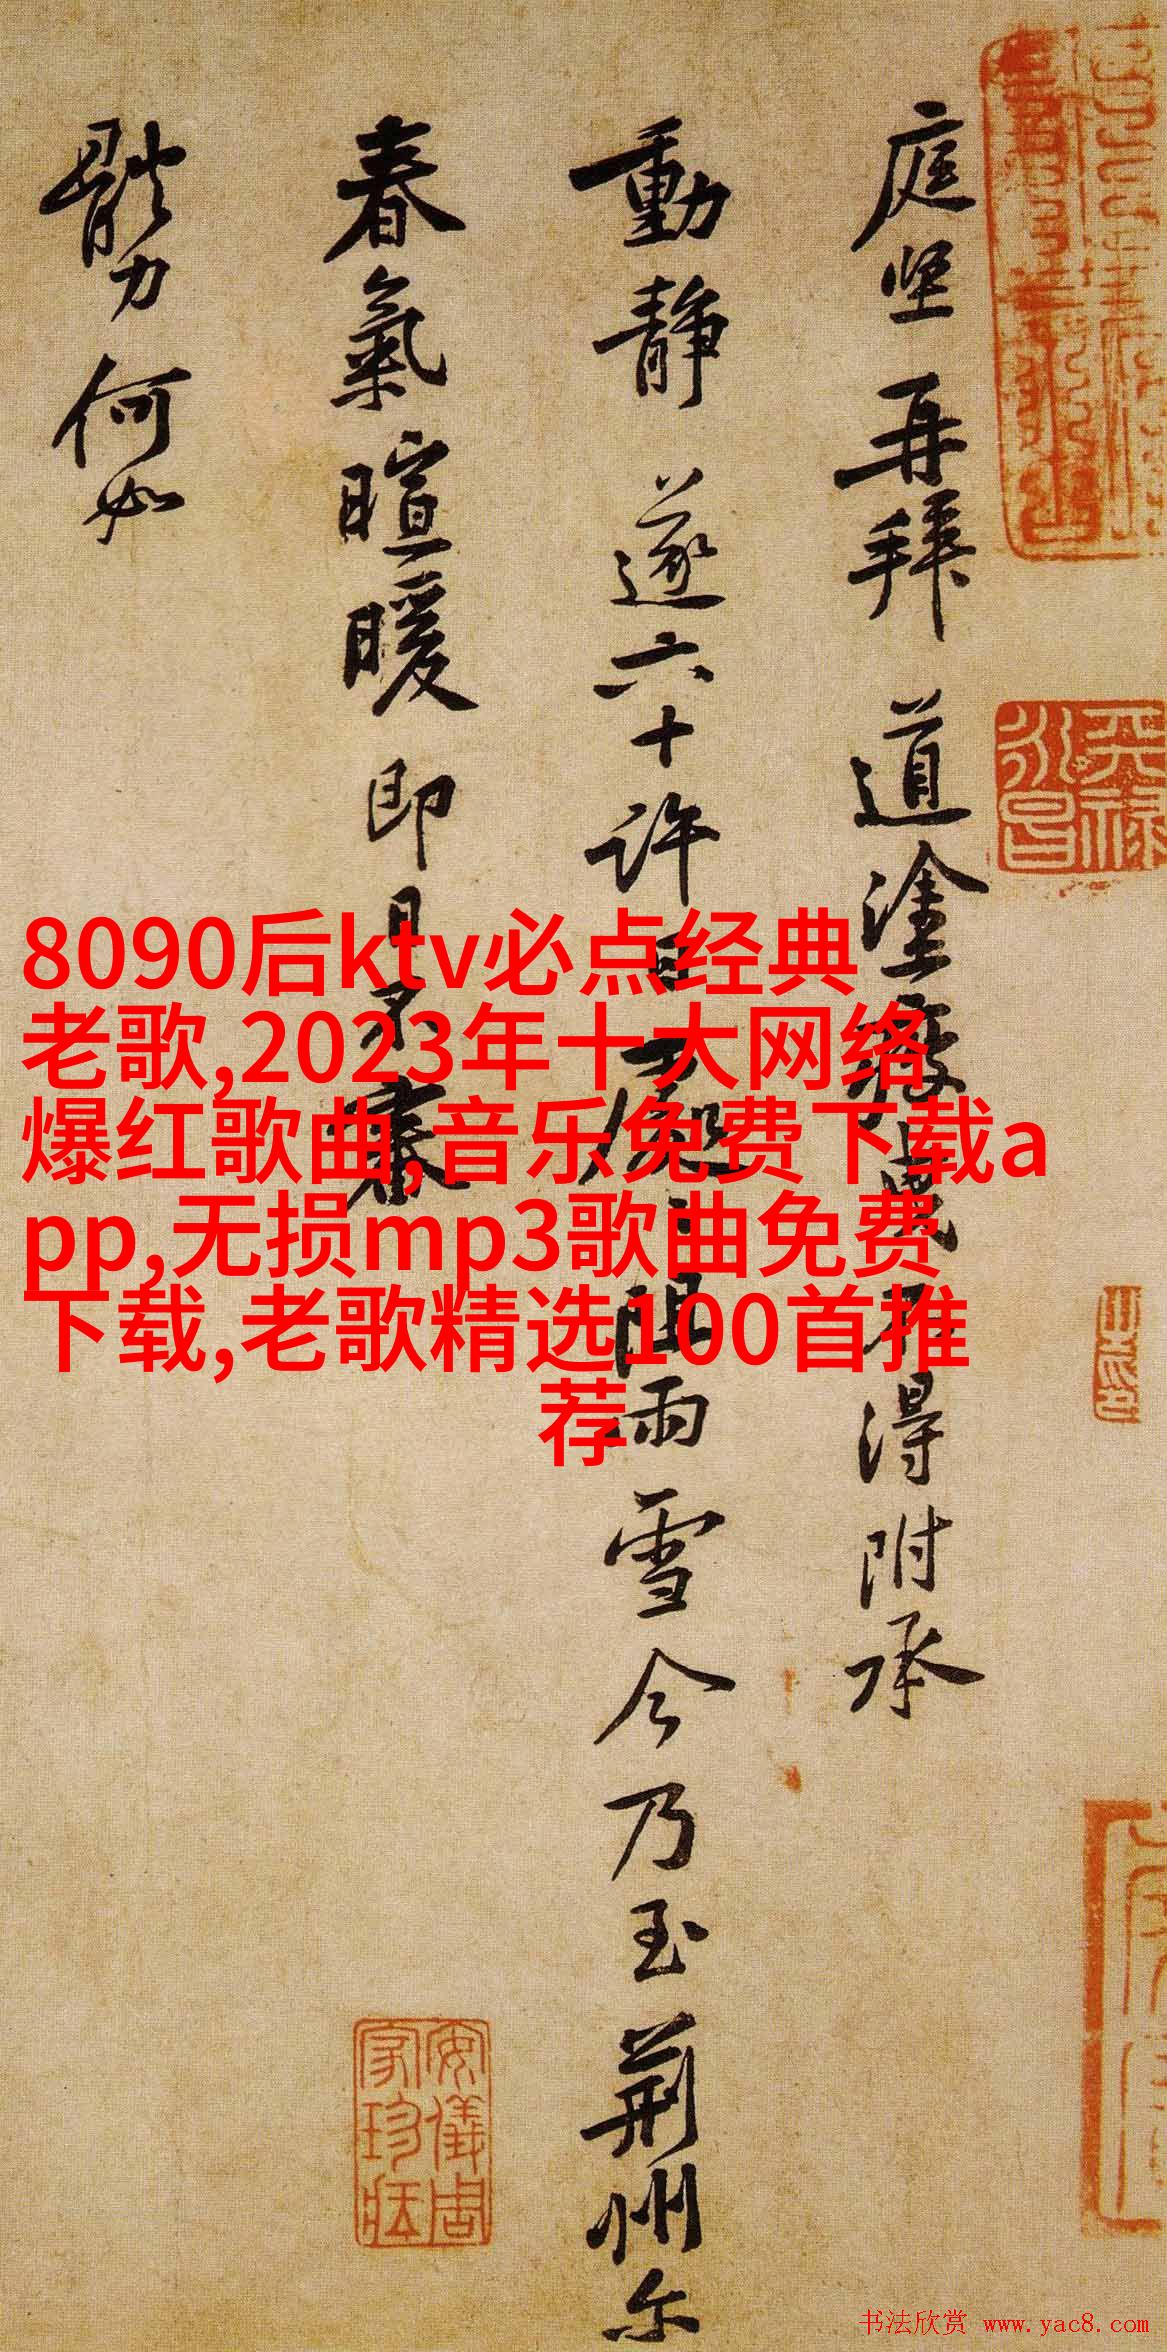 庭坚再拜道塗得附承
動静遂六十许雨雪今乃至荆州尔
春氣暄暖即日不審
體力何如
8090后ktv必点经典
老歌,2023年十大网络
爆红歌曲,音乐免费下载a
pp,无损mp3歌曲免费
下载,老歌精选100首推
荐
天禄
永昌
安儀周
家珍藏
书法欣赏 www.yac8.com